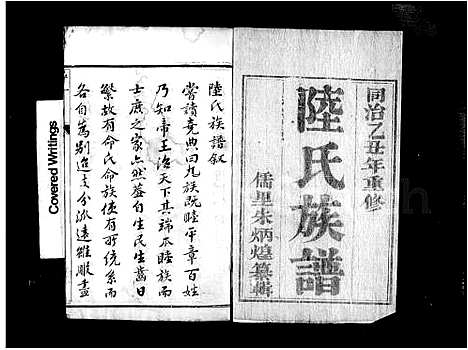 同治乙丑年重修
陸氏族譜
儒里朱炳煌纂輯
陸氏族譜叙
嘗讀堯典曰九族既睦平章百姓
乃知帝王治天下其端瓜睦族而
士庶之家亦然蓋自生民生齒日
繁故有命氏命族使有所統系而
各自為別迨支分派遠雖彫盡
Covered Writings